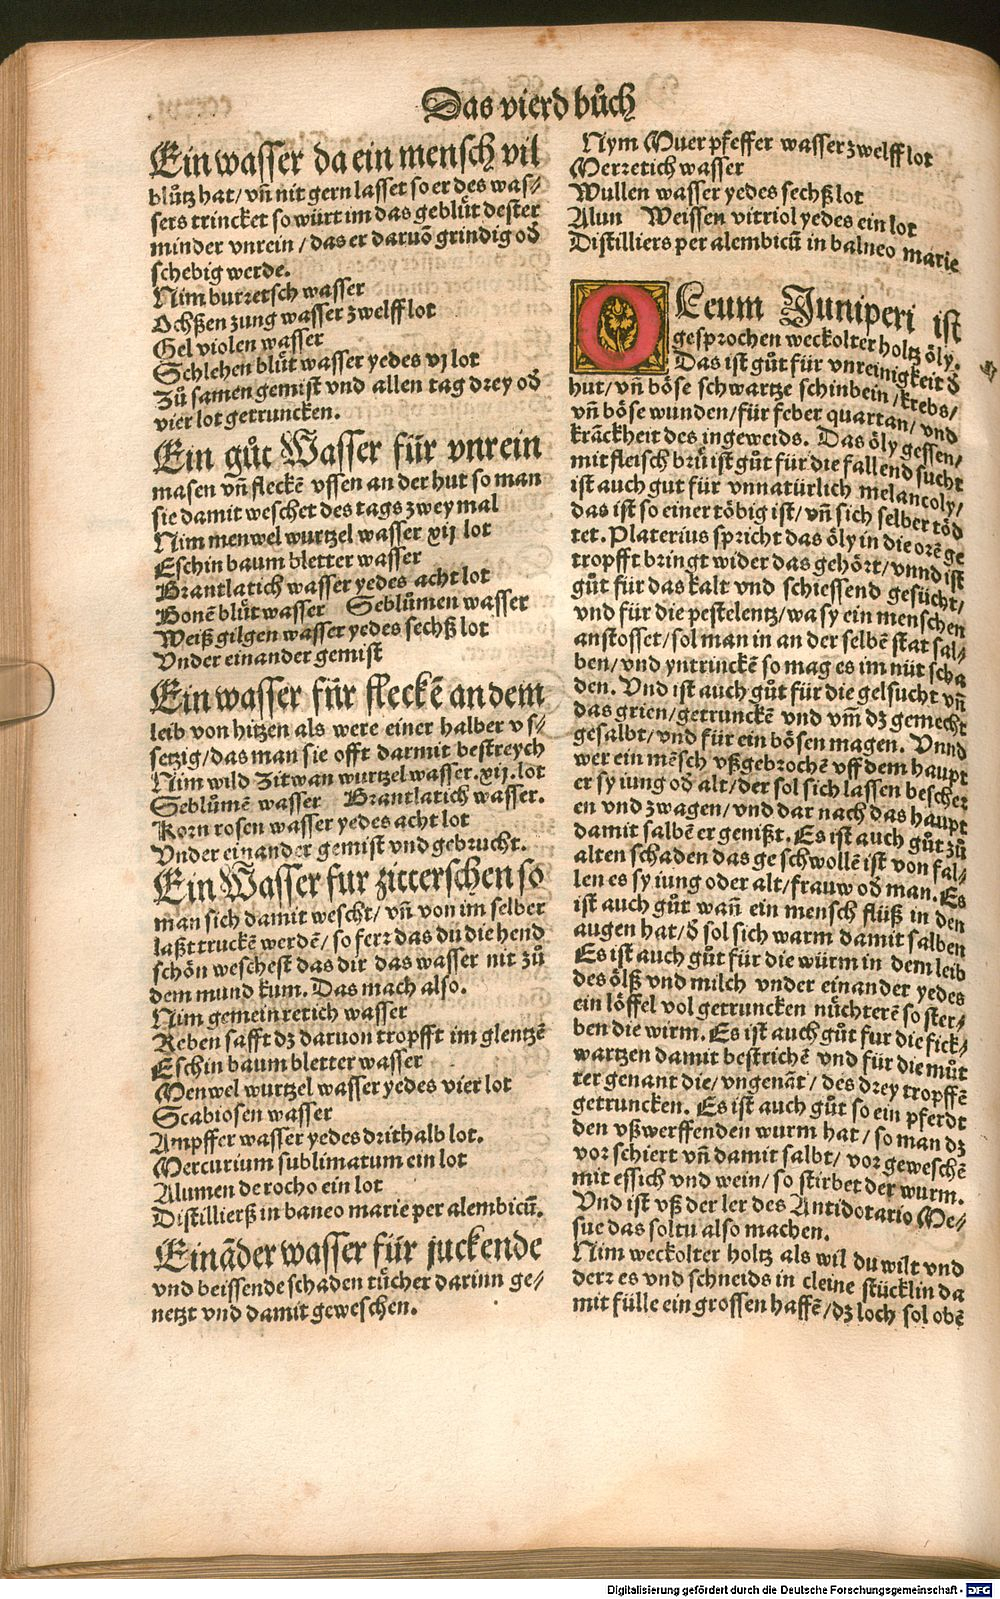 Das vierd bůch
Ein wasser da ein mensch vil
blůtz hat / vn̄ nit gern lasset so er des was⸗
sers trincket so würt im das geblüt dester
minder vnrein / das er daruō grindig od̄
schebig werde.
Nim burretsch wasser
Ochßen zung wasser zwelff lot
Gel violen wasser
Schlehen blüt wasser yedes vj lot
Zů samen gemist vnd allen tag drey od̄
vier lot getruncken.
Ein gůt Wasser für vnrein
masen vn̄ fleckē vssen an der hut so man
sie damit weschet des tags zwey mal
Nim menwel wurtzel wasser xij lot
Eschin baum bletter wasser
Brantlatich wasser yedes acht lot
Bonē blüt wasser Seblůmen wasser
Weiß gilgen wasser yedes sechß lot
Vnder einander gemist
Ein wasser für fleckē an dem
leib von hitzen als were einer halber vs⸗
setzig / das man sie offt darmit bestreych
Nim wild Zitwan wurtzel wasser .xij. lot
Seblůmē wasser Brantlatich wasser.
Korn rosen wasser yedes acht lot
Vnder einander gemist vnd gebrucht.
Ein Wasser fur zitterschen so
man sich damit wescht / vn̄ von im selber
laßt truckē werdē / so ferr das du die hend
schön weschest das dir das wasser nit zů
dem mund kum. Das mach also.
Nim gemein retich wasser
Reben safft dz daruon tropfft im glentzē
Eschin baum bletter wasser
Menwel wurtzel wasser yedes vier lot
Scabiosen wasser
Ampffer wasser yedes drithalb lot.
Mercurium sublimatum ein lot
Alumen de rocho ein lot
Distillierß in baneo marie per alembicū.
Ein āder wasser für juckende
vnd beissende schaden tücher darinn ge⸗
netzt vnd damit geweschen.
Nym Muer pfeffer wasser zwelff lot
Merretich wasser
Wullen wasser yedes sechß lot
Alun Weissen vitriol yedes ein lot
Distilliers per alembicū in balneo marie
OLeum Juniperi ist
gesprochen weckolter holtz öly.
Das ist gůt für vnreinigkeit d̄
hut / vn̄ böse schwartze schinbein / krebs /
vn̄ böse wunden / für feber quartan / vnd
krāckheit des ingeweids. Das öly gessen /
mit fleisch brü ist gůt für die fallend sucht
ist auch gut für vnnatürlich melancoly /
das ist so einer töbig ist / vn̄ sich selber töd
tet. Platerius spricht das öly in die orē ge
tropfft bringt wider das gehört / vnnd ist
gůt für das kalt vnd schiessend gesücht /
vnd für die pestelentz / wa sy ein menschen
anstosset / sol man in an der selbē stat sal⸗
ben / vnd yntrinckē so mag es im nüt scha
den. Vnd ist auch gůt für die gelsucht vn̄
das grien / getrunckē vnd vm̄ dz gemecht
gesalbt / vnd für ein bösen magen. Vnnd
wer ein mēsch vßgebrochē vff dem haupt
er sy iung od̄ alt / der sol sich lassen bescher
en vnd zwagen / vnd dar nach das haupt
damit salbē er genißt. Es ist auch gůt zů
alten schaden das geschwollē ist von fal⸗
len es sy iung oder alt / frauw od̄ man. Es
ist auch gůt wañ ein mensch flüß in den
augen hat / d̄ sol sich warm damit salben
Es ist auch gůt für die würm in dem leib
des ölß vnd milch vnder einander yedes
ein löffel vol getruncken nüchterē so ster⸗
ben die wirm. Es ist auch gůt fur die fick⸗
wartzen damit bestrichē vnd für die můt
ter genant die / vngenāt / des drey tropffē
getruncken. Es ist auch gůt so ein pferdt
den vßwerffenden wurm hat / so man dz
vor schiert vn̄ damit salbt / vor geweschē
mit essich vnd wein / so stirbet der wurm.
Vnd ist vß der ler des Antidotario Me⸗
sue das soltu also machen.
Nim weckolter holtz als wil du wilt vnd
derr es vnd schneids in cleine stücklin da
mit fülle ein grossen haffē / dz loch sol obē
Digitalisierung gefördert durch die Deutsche Forschungsgemeinschaft - DFG